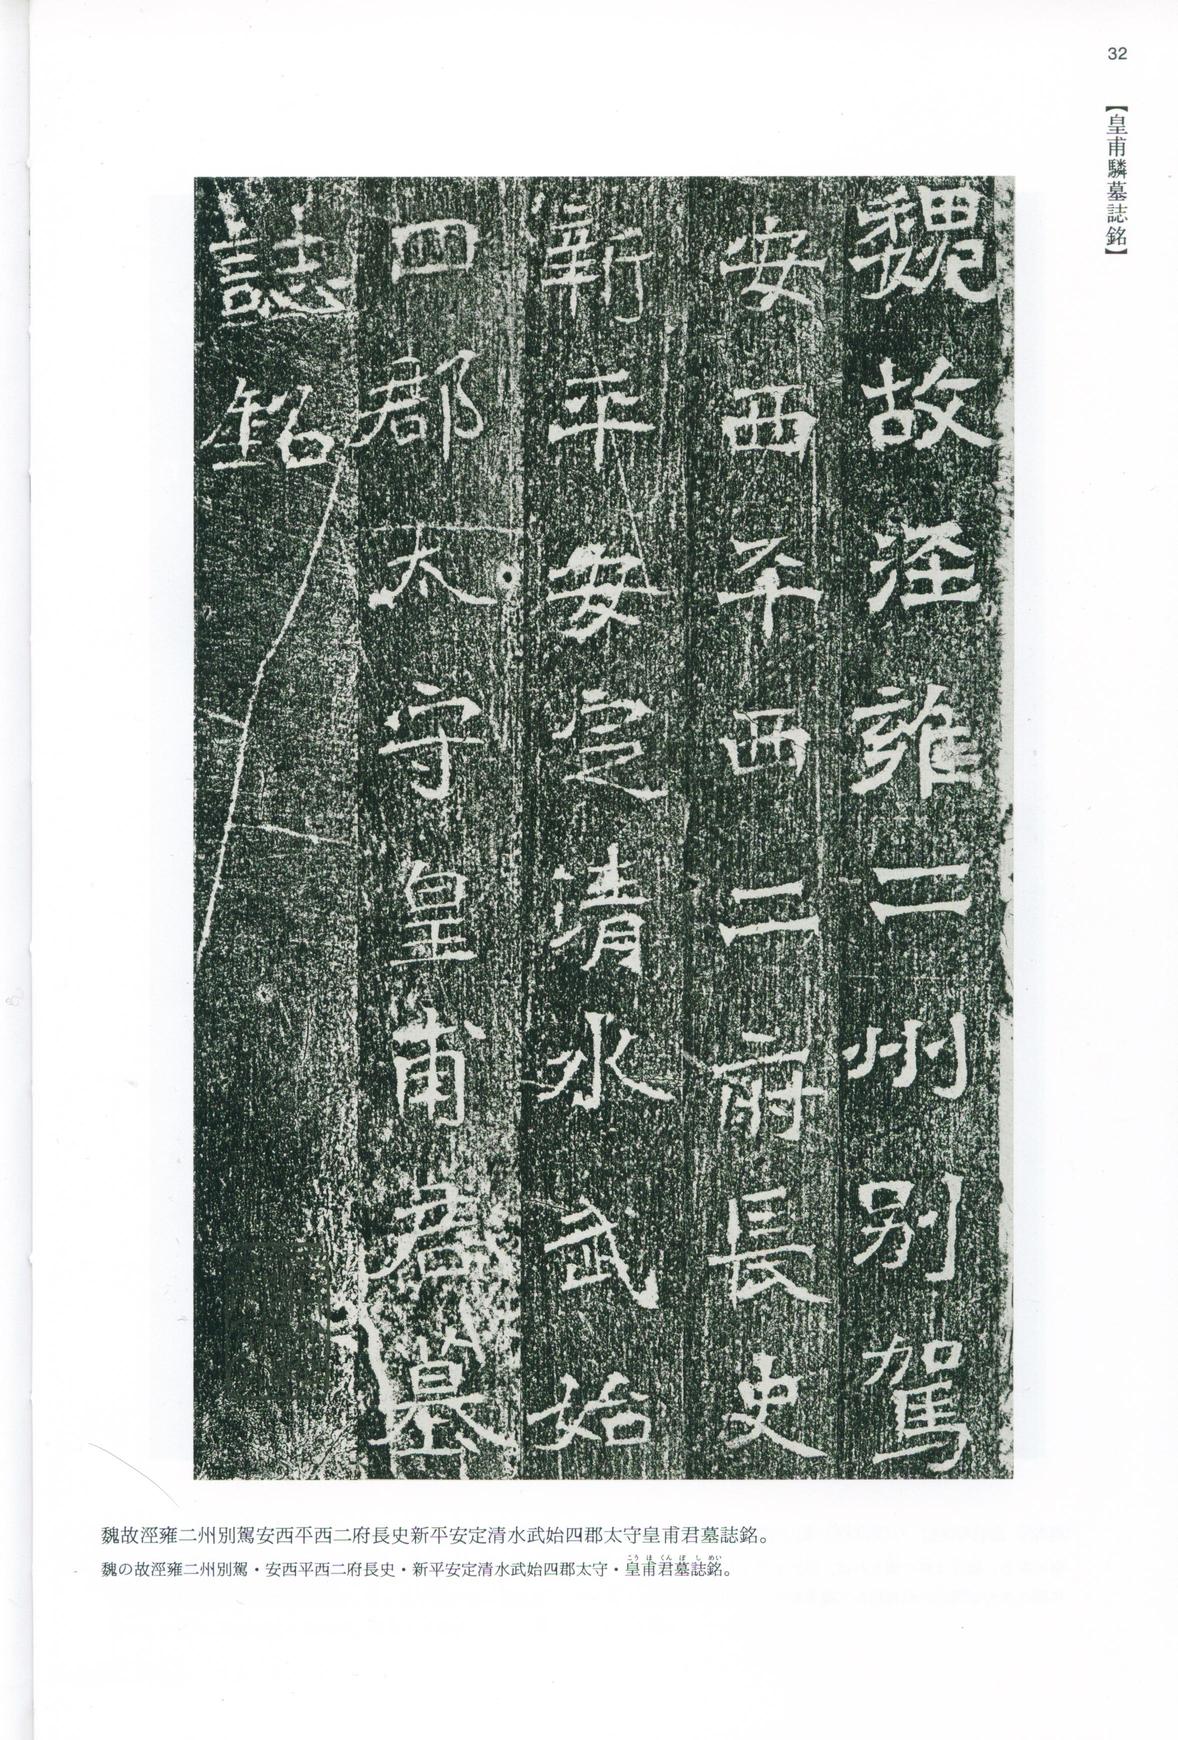 32
【皇甫驎墓誌銘】
魏故涇雍二州別駕
安西平西二府長史
新平安定清水武始
四郡太守皇甫君墓
誌銘
魏故涇雍二州別駕安西平西二府長史新平安定清水武始四郡太守皇甫君墓誌銘。
こう ほ くん ぼ し めい
魏の故涇雍二州別駕・安西平西二府長史・新平安定清水武始四郡太守・皇甫君墓誌銘。